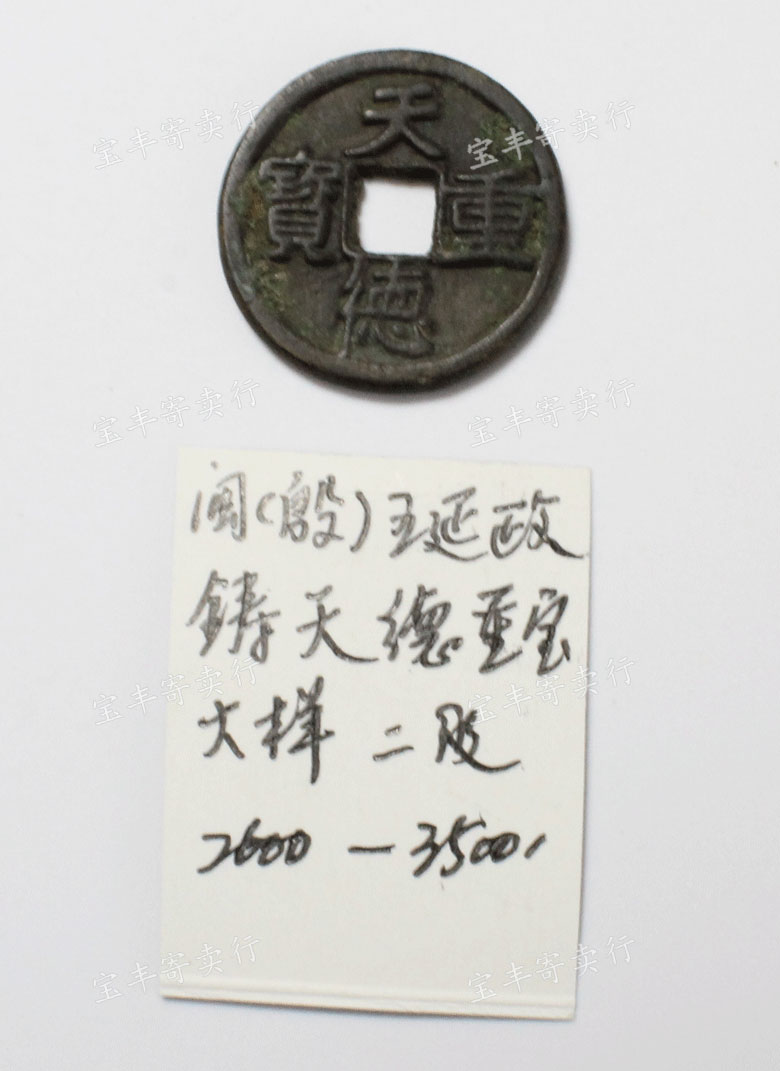 天
寶 重
德
闽(殷)王延政
鋳天德重宝
大样 二股
2600 — 3500
宝丰寄卖行 宝丰寄卖行
宝丰寄卖行 宝丰寄卖行
宝丰寄卖行 宝丰寄卖行
宝丰寄卖行 宝丰寄卖行